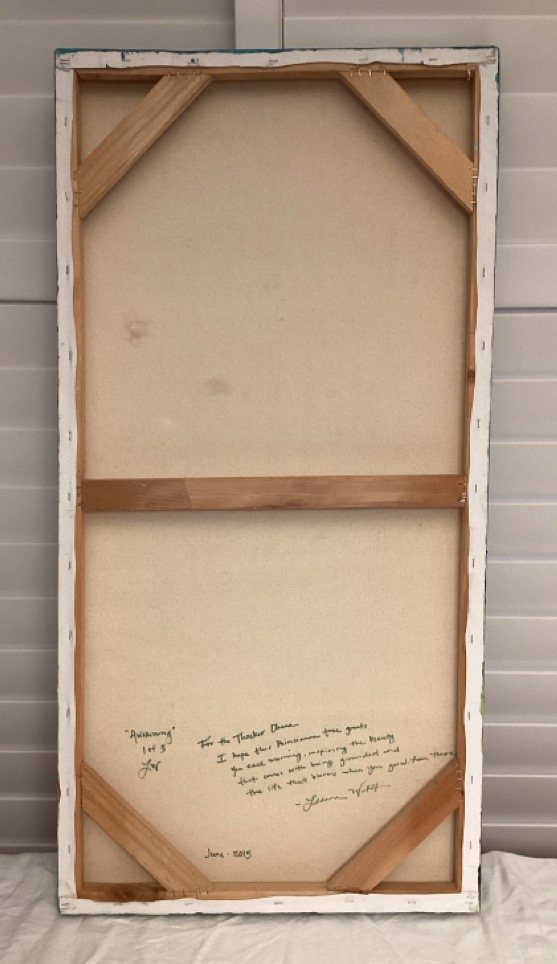 "Awakening"
1 of 3
For the Thacker
I hope this Poinciana tree greets
you each morning, inspiring the beauty
that comes with being grounded and
the life that blooms when you
June - 2015